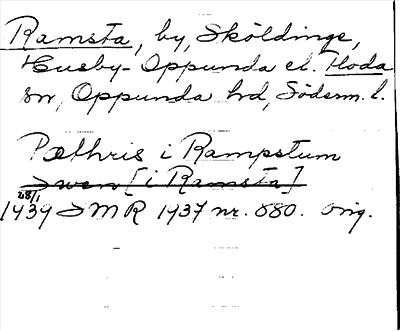 Ramsta, by, Sköldinge,
Eneby-Oppunda el. Floda
sn, Oppunda hd, Söderm. l.
Pæthris i Rampstum
Swen [i Ramsta]
28/1
1439 SMR 1937 nr. 880. Orig.